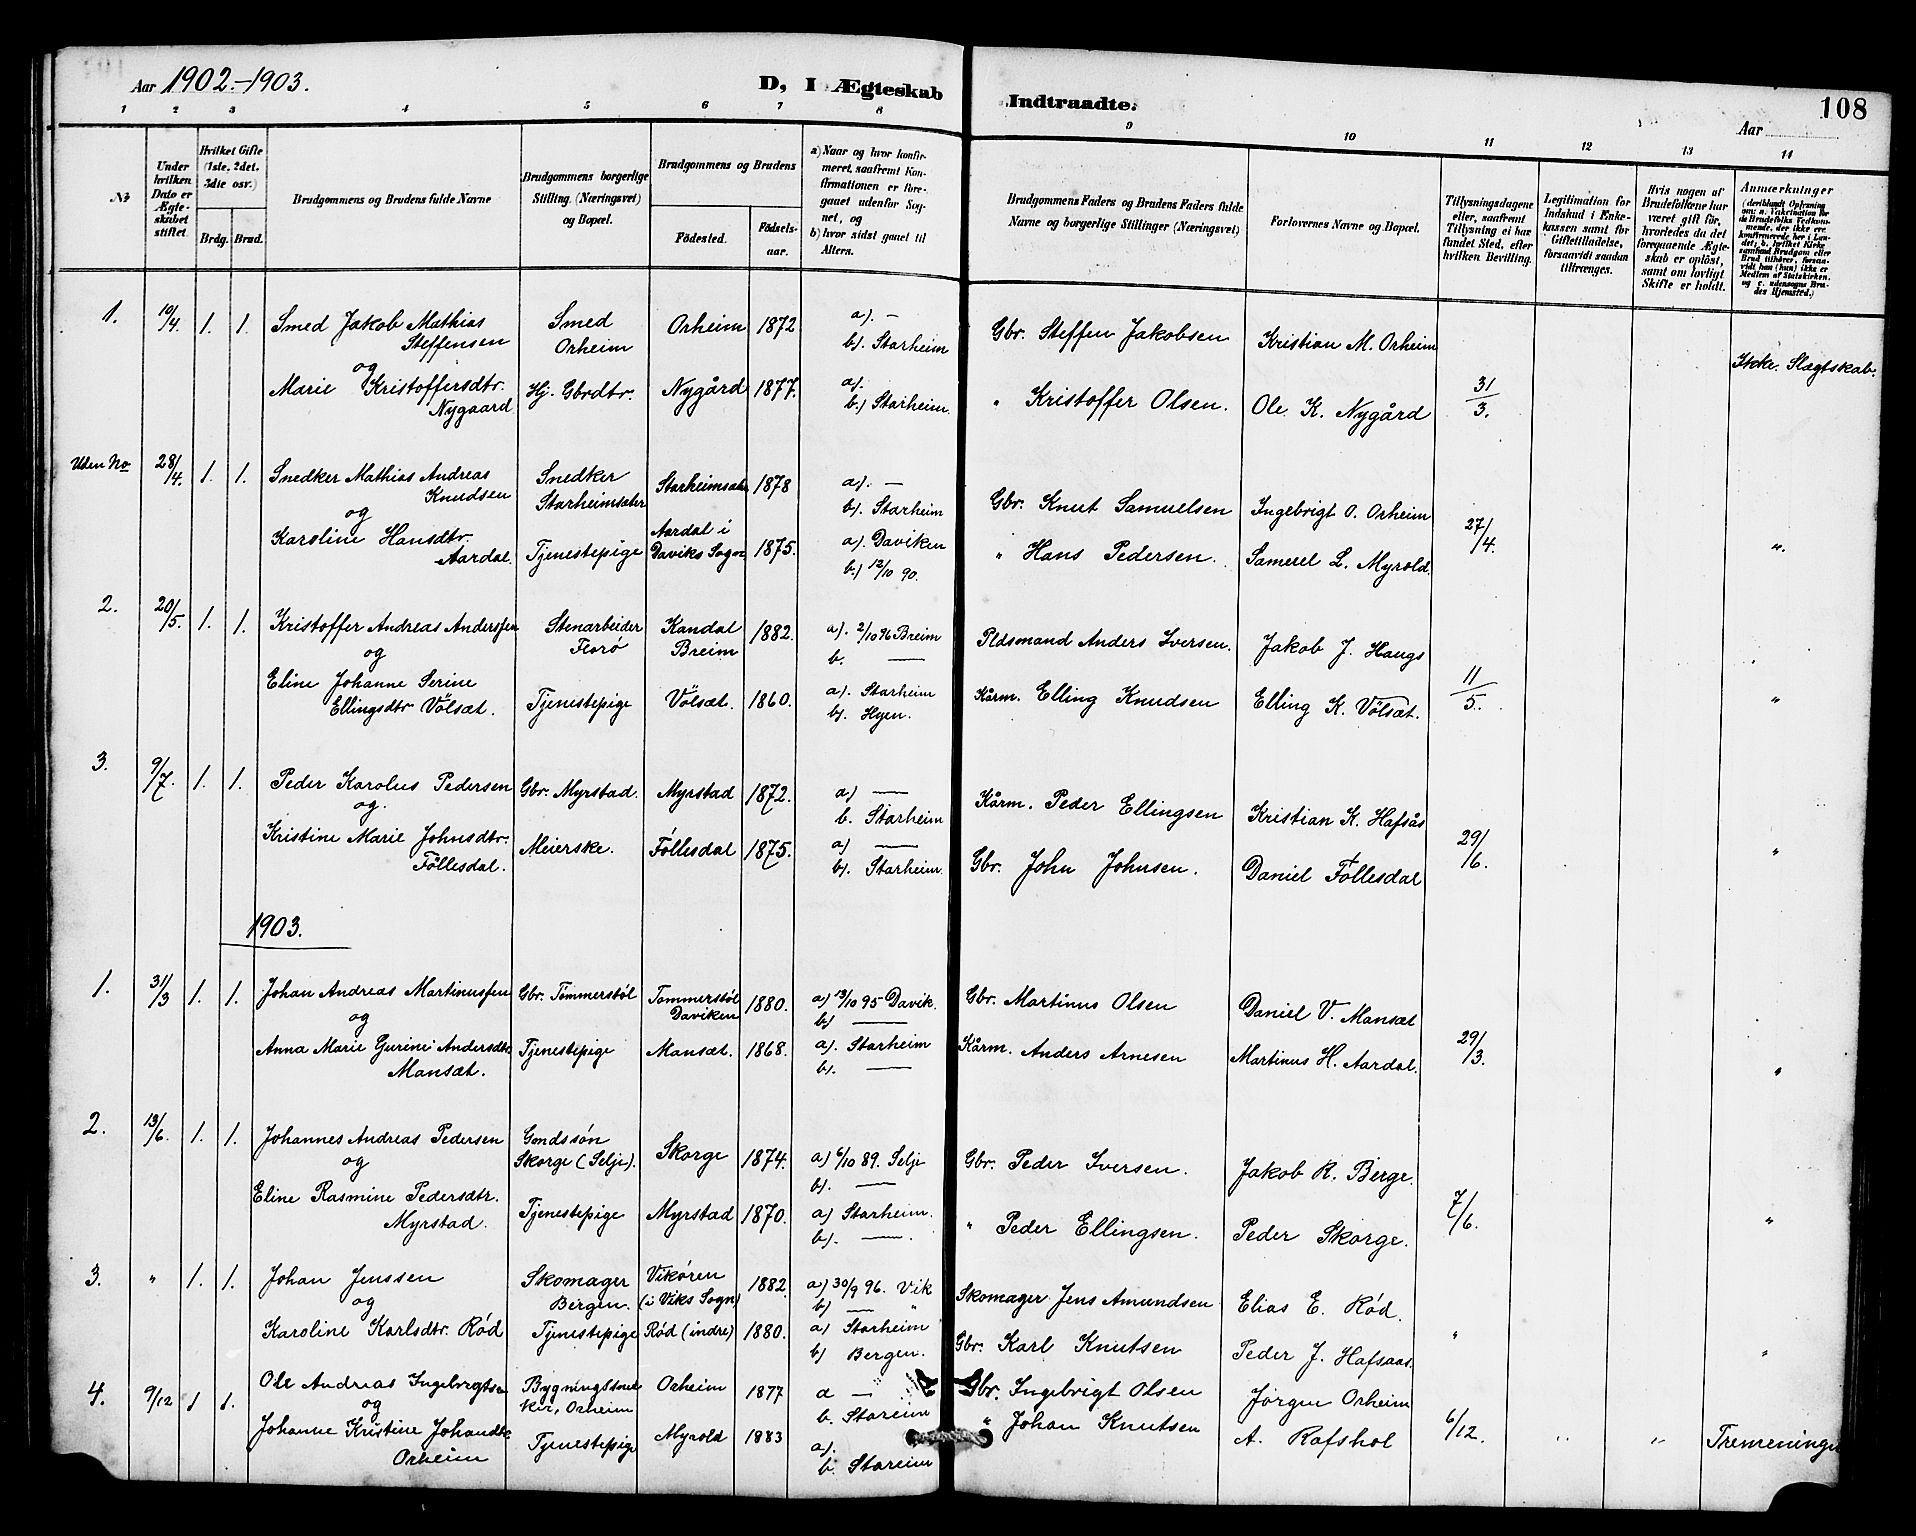 Aar 1902.-1903.
D, I Ægteskab
Indtraadte.
108
Aar
1 2 3 4 5 6 7 8 9 10 11 12 13 14
No
Under hvilken Dato er Ægteskabet stiftet.
Hvilket Gifte (1ste, 2det, 3die osv.)
Brdg. Brud.
Brudgommens og Brudens fulde Navne
Brudgommens borgerlige Stilling. (Næringsvei) og Bopæl.
Brudgommens og Brudens
Fødested.
Fødselsaar.
a) Naar og hvor konfirmeret, saafremt Konfirmationen er foregaaet udenfor Sognet, og
b) hvor sidst gaaet til Alters.
Brudgommens Faders og Brudens Faders fulde Navne og borgerlige Stillinger (Næringsvei)
Forlovernes Navne og Bopæl.
Tillysningsdagene eller, saafremt Tillysning ei har fundet Sted, efter hvilken Bevilling.
Legitimation for Indskud i Enkekassen samt for Giftetilladelse, forsaavidt saadan tiltrænges.
Hvis nogen af Brudefolkene har været gift før, hvorledes da det foregaaende Ægteskab er opløst, samt om lovligt Skifte er holdt.
Anmærkninger (deriblandt Oplysning om: a. Vakcination for de Brudefolks Vedkommende, der ikke ere konfirmerede her i Landet; b. hvilket Kirkesamfund Brudgom eller Brud tilhører, forsaavidt han (hun) ikke er Medlem af Statskirken, og c. udensogns Brudes Hjemsted.)
1. 10/4. 1. 1. Smed Jakob Mathias Smed Orheim 1872 a). — Gbr. Steffen Jakobsen Kristian M. Orheim
Steffensen Orheim b). Starheim Ikke Slægtskab.
og
Marie Kristoffersdtr. Hj. Gbrdtr. Nygård 1877. a). " Kristoffer Olsen. Ole K. Nygård 31/3.
Nygaard b.) Starheim.
Uden No 28/4. 1. 1. Snedker Mathias Andreas Snedker Starheimsæter 1878 a). — Gbr. Knut Samuelsen Ingebrigt O. Orheim
Knudsen Starheimsæter b). Starheim
og
Karoline Hansdtr. Tjenestepige Aardal i Daviks Sogn 1875. a). Daviken " Hans Pedersen. Samuel L. Myrold. 27/4. "
Aardal. b.) 12/10 90.
2. 20/5. 1. 1. Kristoffer Andreas Andersen Stenarbeider Kandal 1882. a). 2/10 96 Breim Pldsmand Anders Iversen. Jakob J. Haugs
og Florø Breim b. —
Eline Johanne Serine Tjenestepige Völsæt. 1860. a). Starheim Kårm. Elling Knudsen Elling K. Völsæt. 11/5. "
Ellingsdtr Völsæt. b). Hyen.
3. 9/7. 1. 1. Peder Karolus Pedersen Gbr. Myrstad. Myrstad 1872. a) — Kårm. Peder Ellingsen Kristian K. Hafsås
og. b. Starheim
Kristine Marie Johnsdtr. Meierske. Föllesdal 1875. a) — Gbr. John Johnsen. Daniel Föllesdal 29/6. "
Föllesdal. b). Starheim.
1903.
1. 31/3 1. 1. Johan Andreas Martinussen Gbr. Tömmerstøl Tømmerstøl 1880. a) 13/10 95 Davik. Gbr. Martinus Olsen Daniel V. Mansæt
og Daviken b) —
Anna Marie Gurine Andersdtr Tjenestepige Mansæt. 1868. a). Starheim Kårm. Anders Arnesen Martinus H. Aardal. 29/3. "
Mansæt. b). —
2. 13/6. 1. 1. Johannes Andreas Pedersen Gmdssön Skorge 1874. a) 6/10 89. Selje Gbr. Peder Iversen. Jakob R. Berge.
og Skorge (Selje). b). —
Eline Rasmine Pedersdtr. Tjenestepige Myrstad 1870. a) Starheim. " Peder Ellingsen. Peder Skorge. 7/6. "
Myrstad. b). —.
3. " 1. 1. Johan Jenssen Skomager Vikøren 1882. a) 30/9 96. Vik Skomager Jens Amundsen Elias E. Rød.
og Bergen. (i Viks Sogn) b) — "
Karoline Karlsdtr. Rød Tjenestepige Rød (indre) 1880. a) Starheim Gbr. Karl Knutsen Peder J. Hafsaas. " "
b) Bergen.
4. 9/12 1 1. Ole Andreas Ingebrigtsen Bygningssnedker, Orheim Orheim 1877 a — Gbr. Ingebrigt Olsen Jørgen Orheim
og b. Stareim
Johanne Kristine Johansdtr Tjenestepige Myrold 1883 a). " Johan Knutsen A. Rafshol 6/12. " " Tremeninger
Orheim b. Stareim